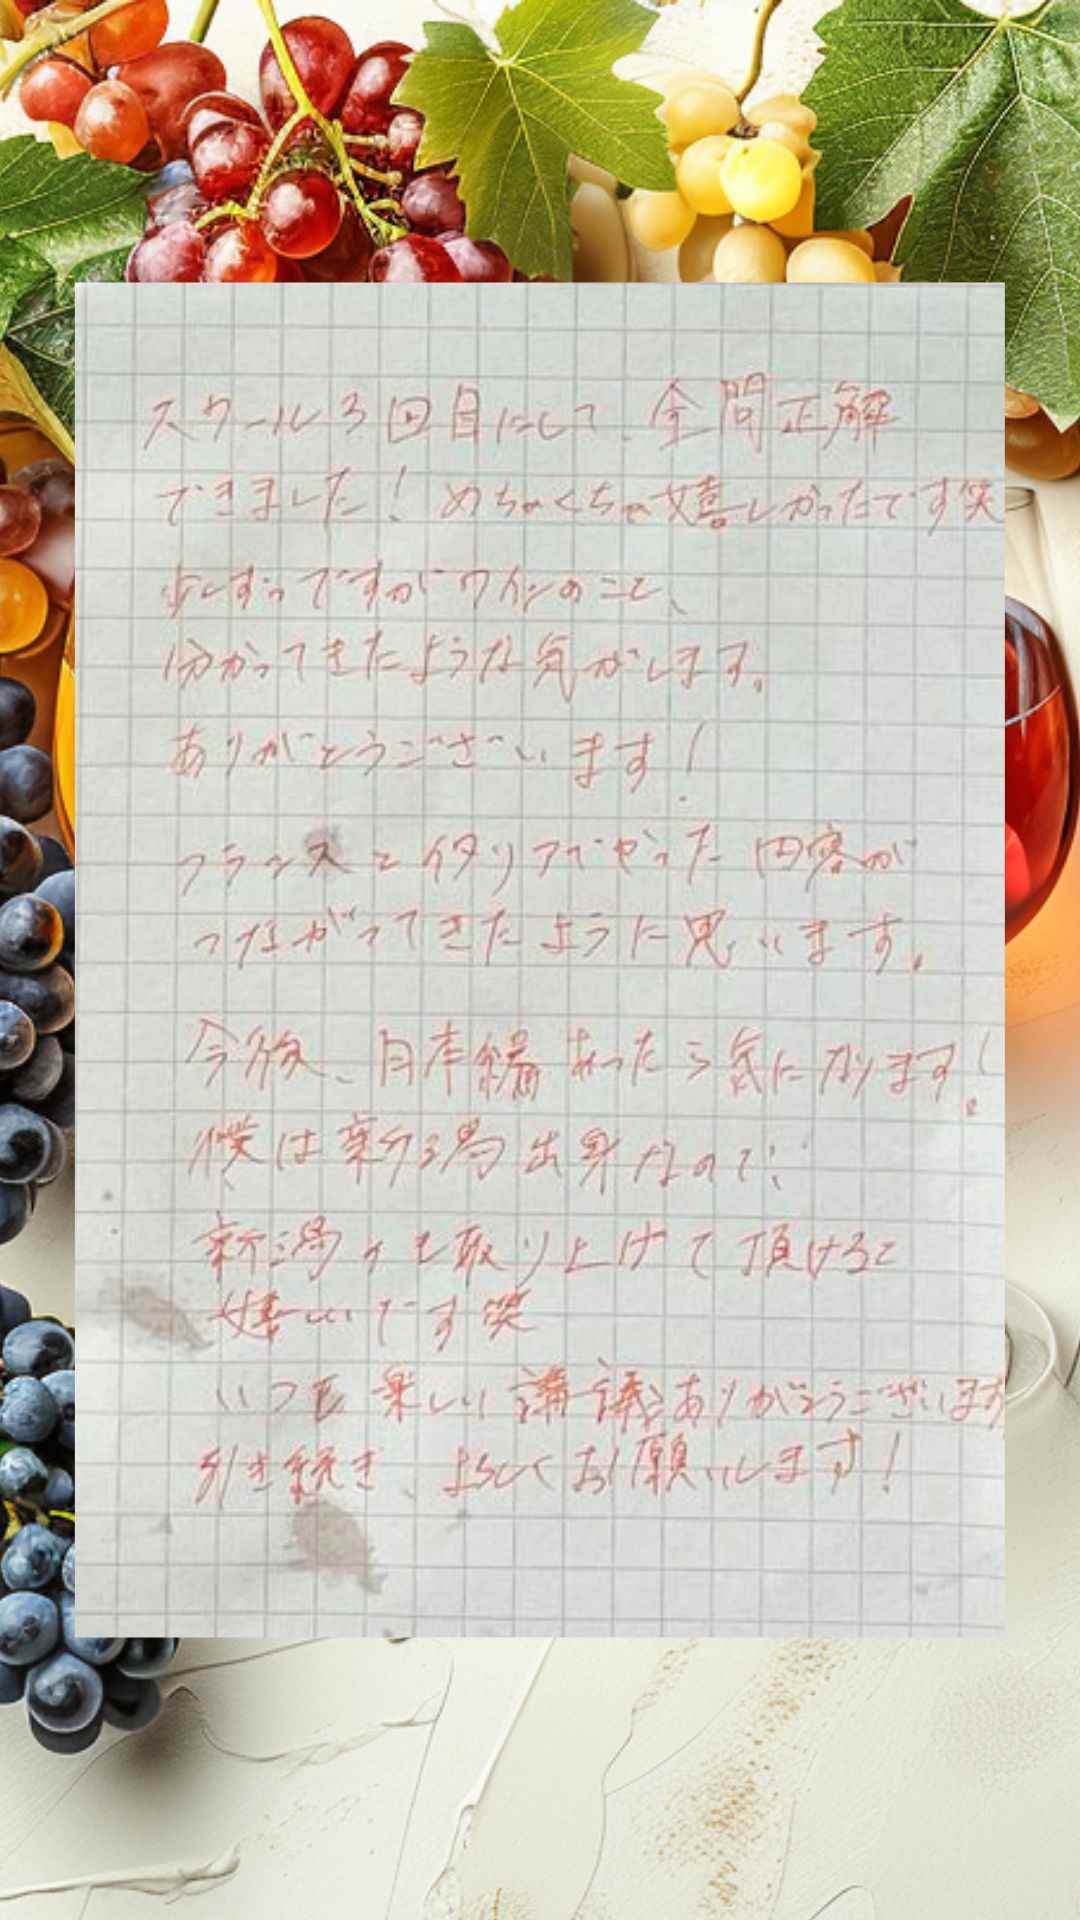 スクール3回目にして、全問正解
できました！めちゃくちゃ嬉しかったです笑
少しずつですがワインのこと、
分かってきたような気がします。
ありがとうございます！
フランスとイタリアでやった内容が
つながってきたように思います。
今後、日本編あったら気になります！
僕は新潟出身なので、
新潟も取り上げて頂けると
嬉しいです笑
いつも楽しい講議ありがとうございます
引き続き、よろしくお願いします！